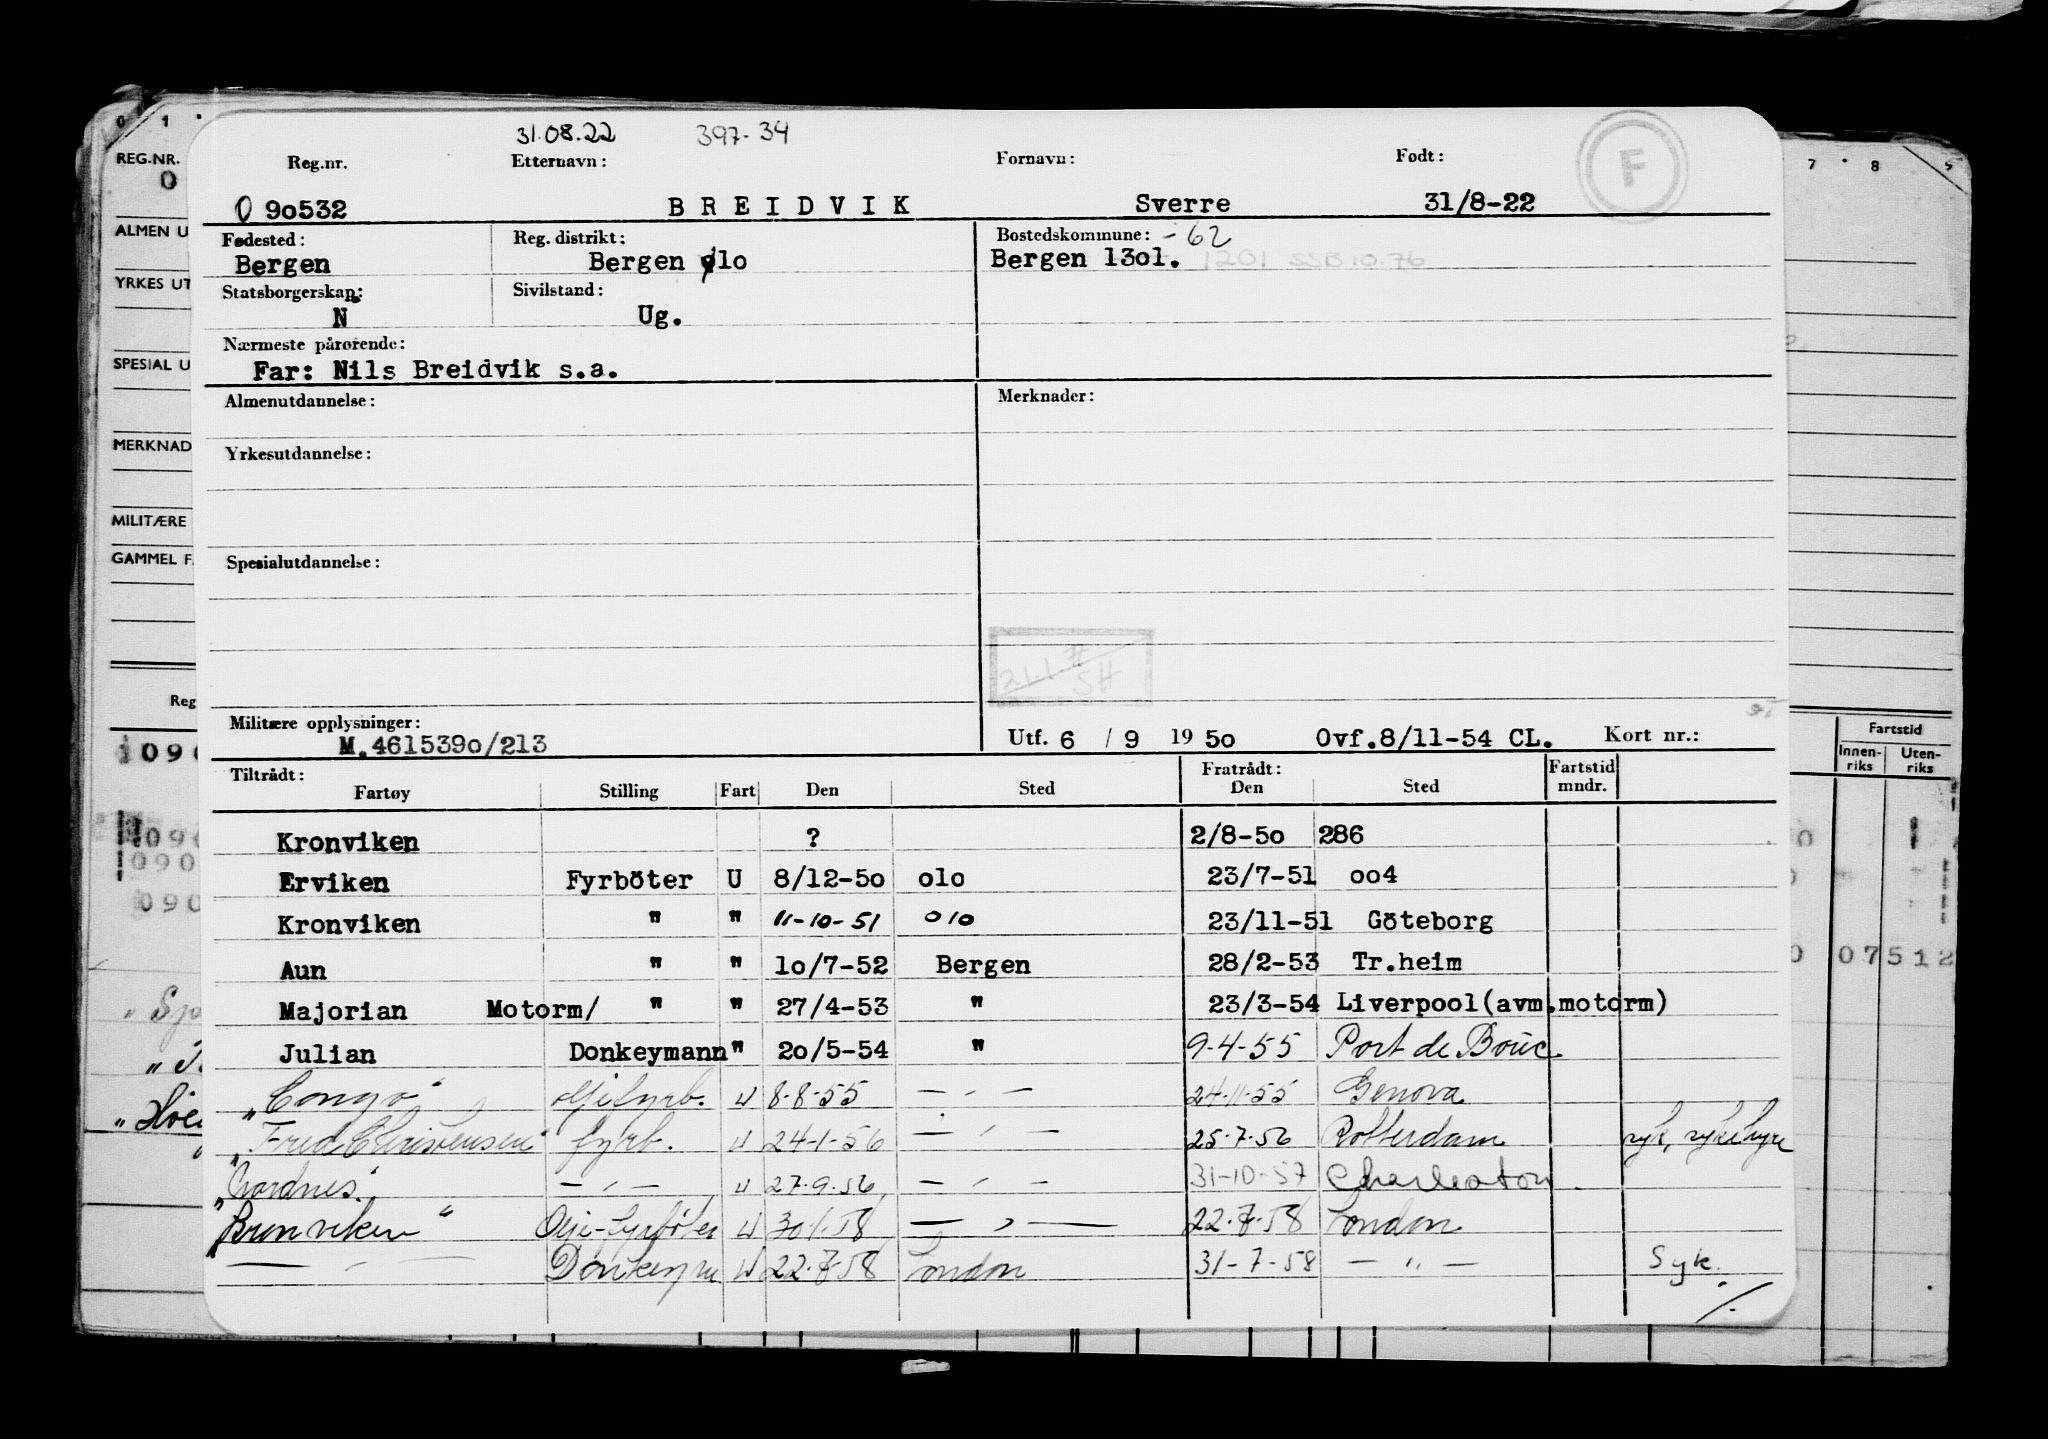 31.08.22 397-34
Reg.nr. Etternavn: Fornavn: Født: F
O 90532 BREIDVIK Sverre 31/8-22
Fødested: Reg. distrikt: Bostedskommune: -62
Bergen Bergen olo Bergen 13o1. 1201 SSB 10.76
Statsborgerskap: Sivilstand:
N Ug.
Nærmeste pårørende:
Far: Nils Breidvik s.a.
Almenutdannelse: Merknader:
Yrkesutdannelse:
Spesialutdannelse:
SH
Militære opplysninger:
M.461539o/213 Utf. 6 / 9 19 5o Ovf.8/11-54 CL. Kort nr.:
Tiltrådt: Fratrådt: Fartstid
Fartøy Stilling Fart Den Sted Den Sted mndr.
Kronviken ? 2/8-5o 286
Erviken Fyrböter U 8/12-5o olo 23/7-51 oo4
Kronviken " " 11-10-51 010 23/11-51 Göteborg
Aun " " 1o/7-52 Bergen 28/2-53 Tr.heim
Majorian Motorm/ " " 27/4-53 " 23/3-54 Liverpool(avm.motorm)
Julian Donkeymann " 2o/5-54 " 9-4-55 Port de Bouc
"Congo" Oljefyrb. U 8-8-55 — " — 24-11-55 Genova
"Fred Christensen" fyrb. U 24-1-56 — " — 25-7-56 Rotterdam syk, sykehyre
"Nordnes" — " — U 27-9-56 — " — 31-10-57 Charleston
Brunviken" Olje-fyrbøter U 30/1-58 — " — 22-7-58 London
— " — Donkeym U 22-7-58 London 31-7-58 — " — Syk.
./.
REG.NR.
0
ALMEN U
YRKES UT
SPESIAL U
MERKNAD
MILITÆRE
GAMMEL F
Reg
Fartstid
Innen-
riks
Uten-
riks
07512